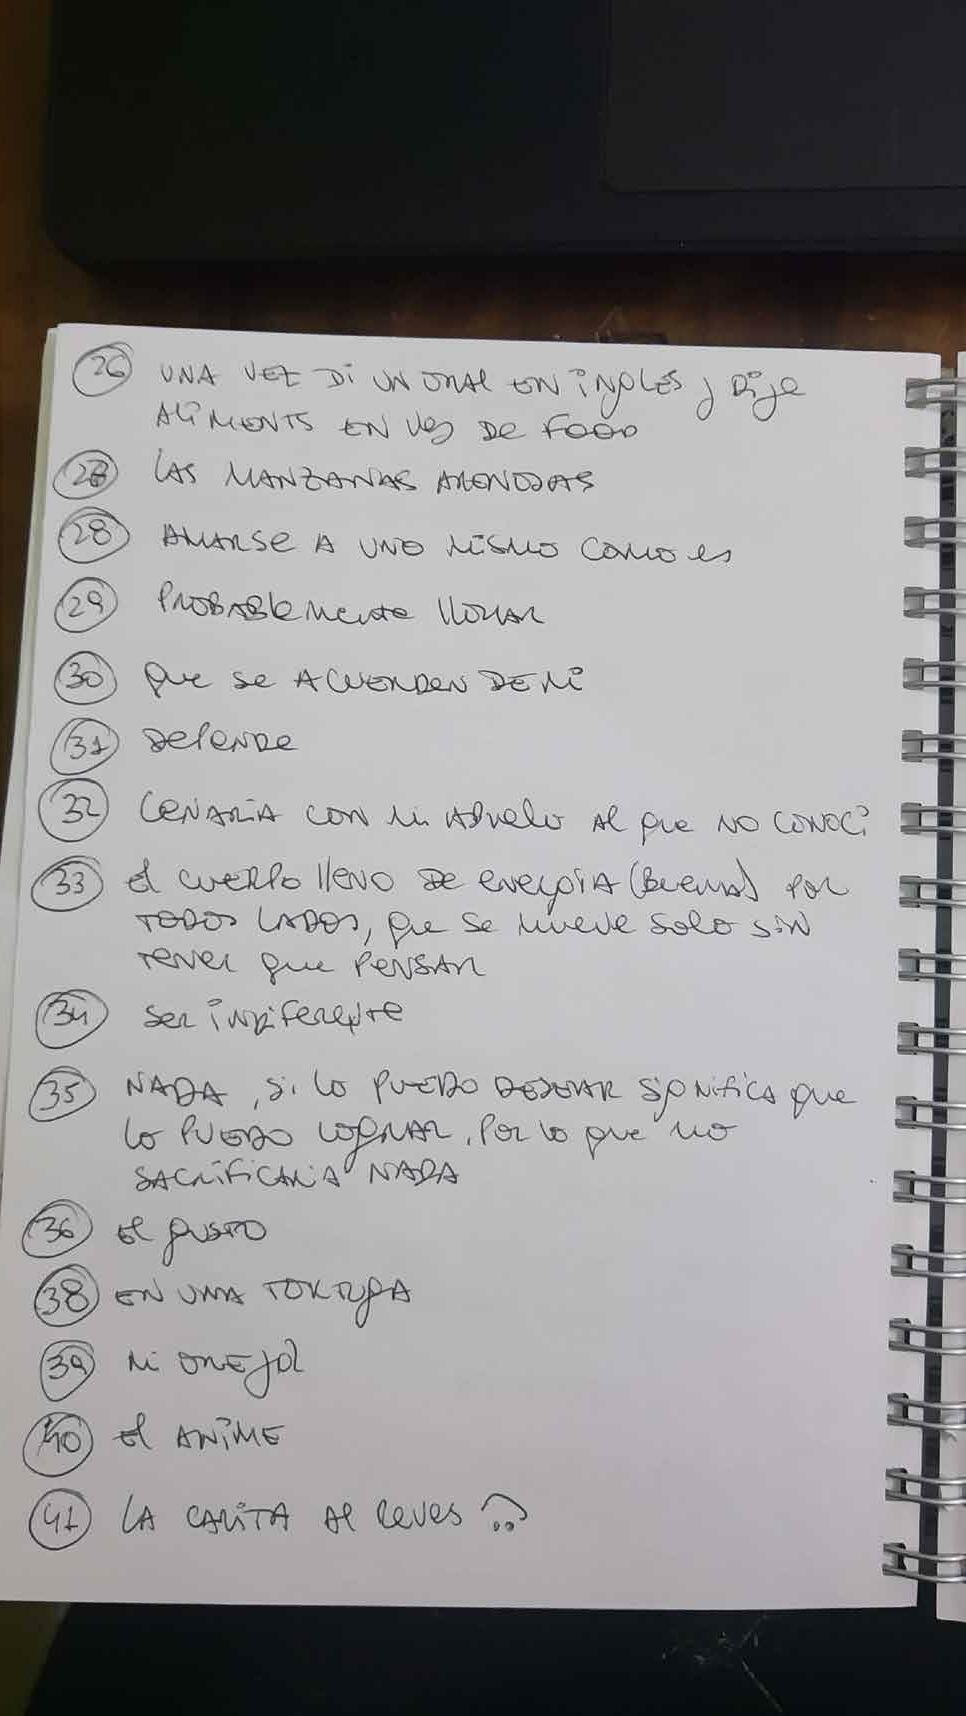 26 UNA VEZ DI UN ORAL EN INGLES Y DIJE
ALIMENTS EN VES DE FOOD
27 LAS MANZANAS ARENOSAS
28 AMARSE A UNO MISMO COMO ES
29 PROBABLEMENTE LLORAR
30 QUE SE ACUERDEN DE MI
31 DEPENDE
32 CENARIA CON MI ABUELO AL QUE NO CONOCI
33 EL CUERPO LLENO DE ENERGIA (BUENA) POR
TODOS LADOS, QUE SE MUEVE SOLO SIN
TENER QUE PENSAR
34 SER INDIFERENTE
35 NADA, SI LO PUEDO DESEAR SIGNIFICA QUE
LO PUEDO LOGRAR, POR LO QUE NO
SACRIFICARIA NADA
36 EL GUSTO
38 EN UNA TORTUGA
39 MI
40 EL ANIME
41 LA CARITA AL REVES